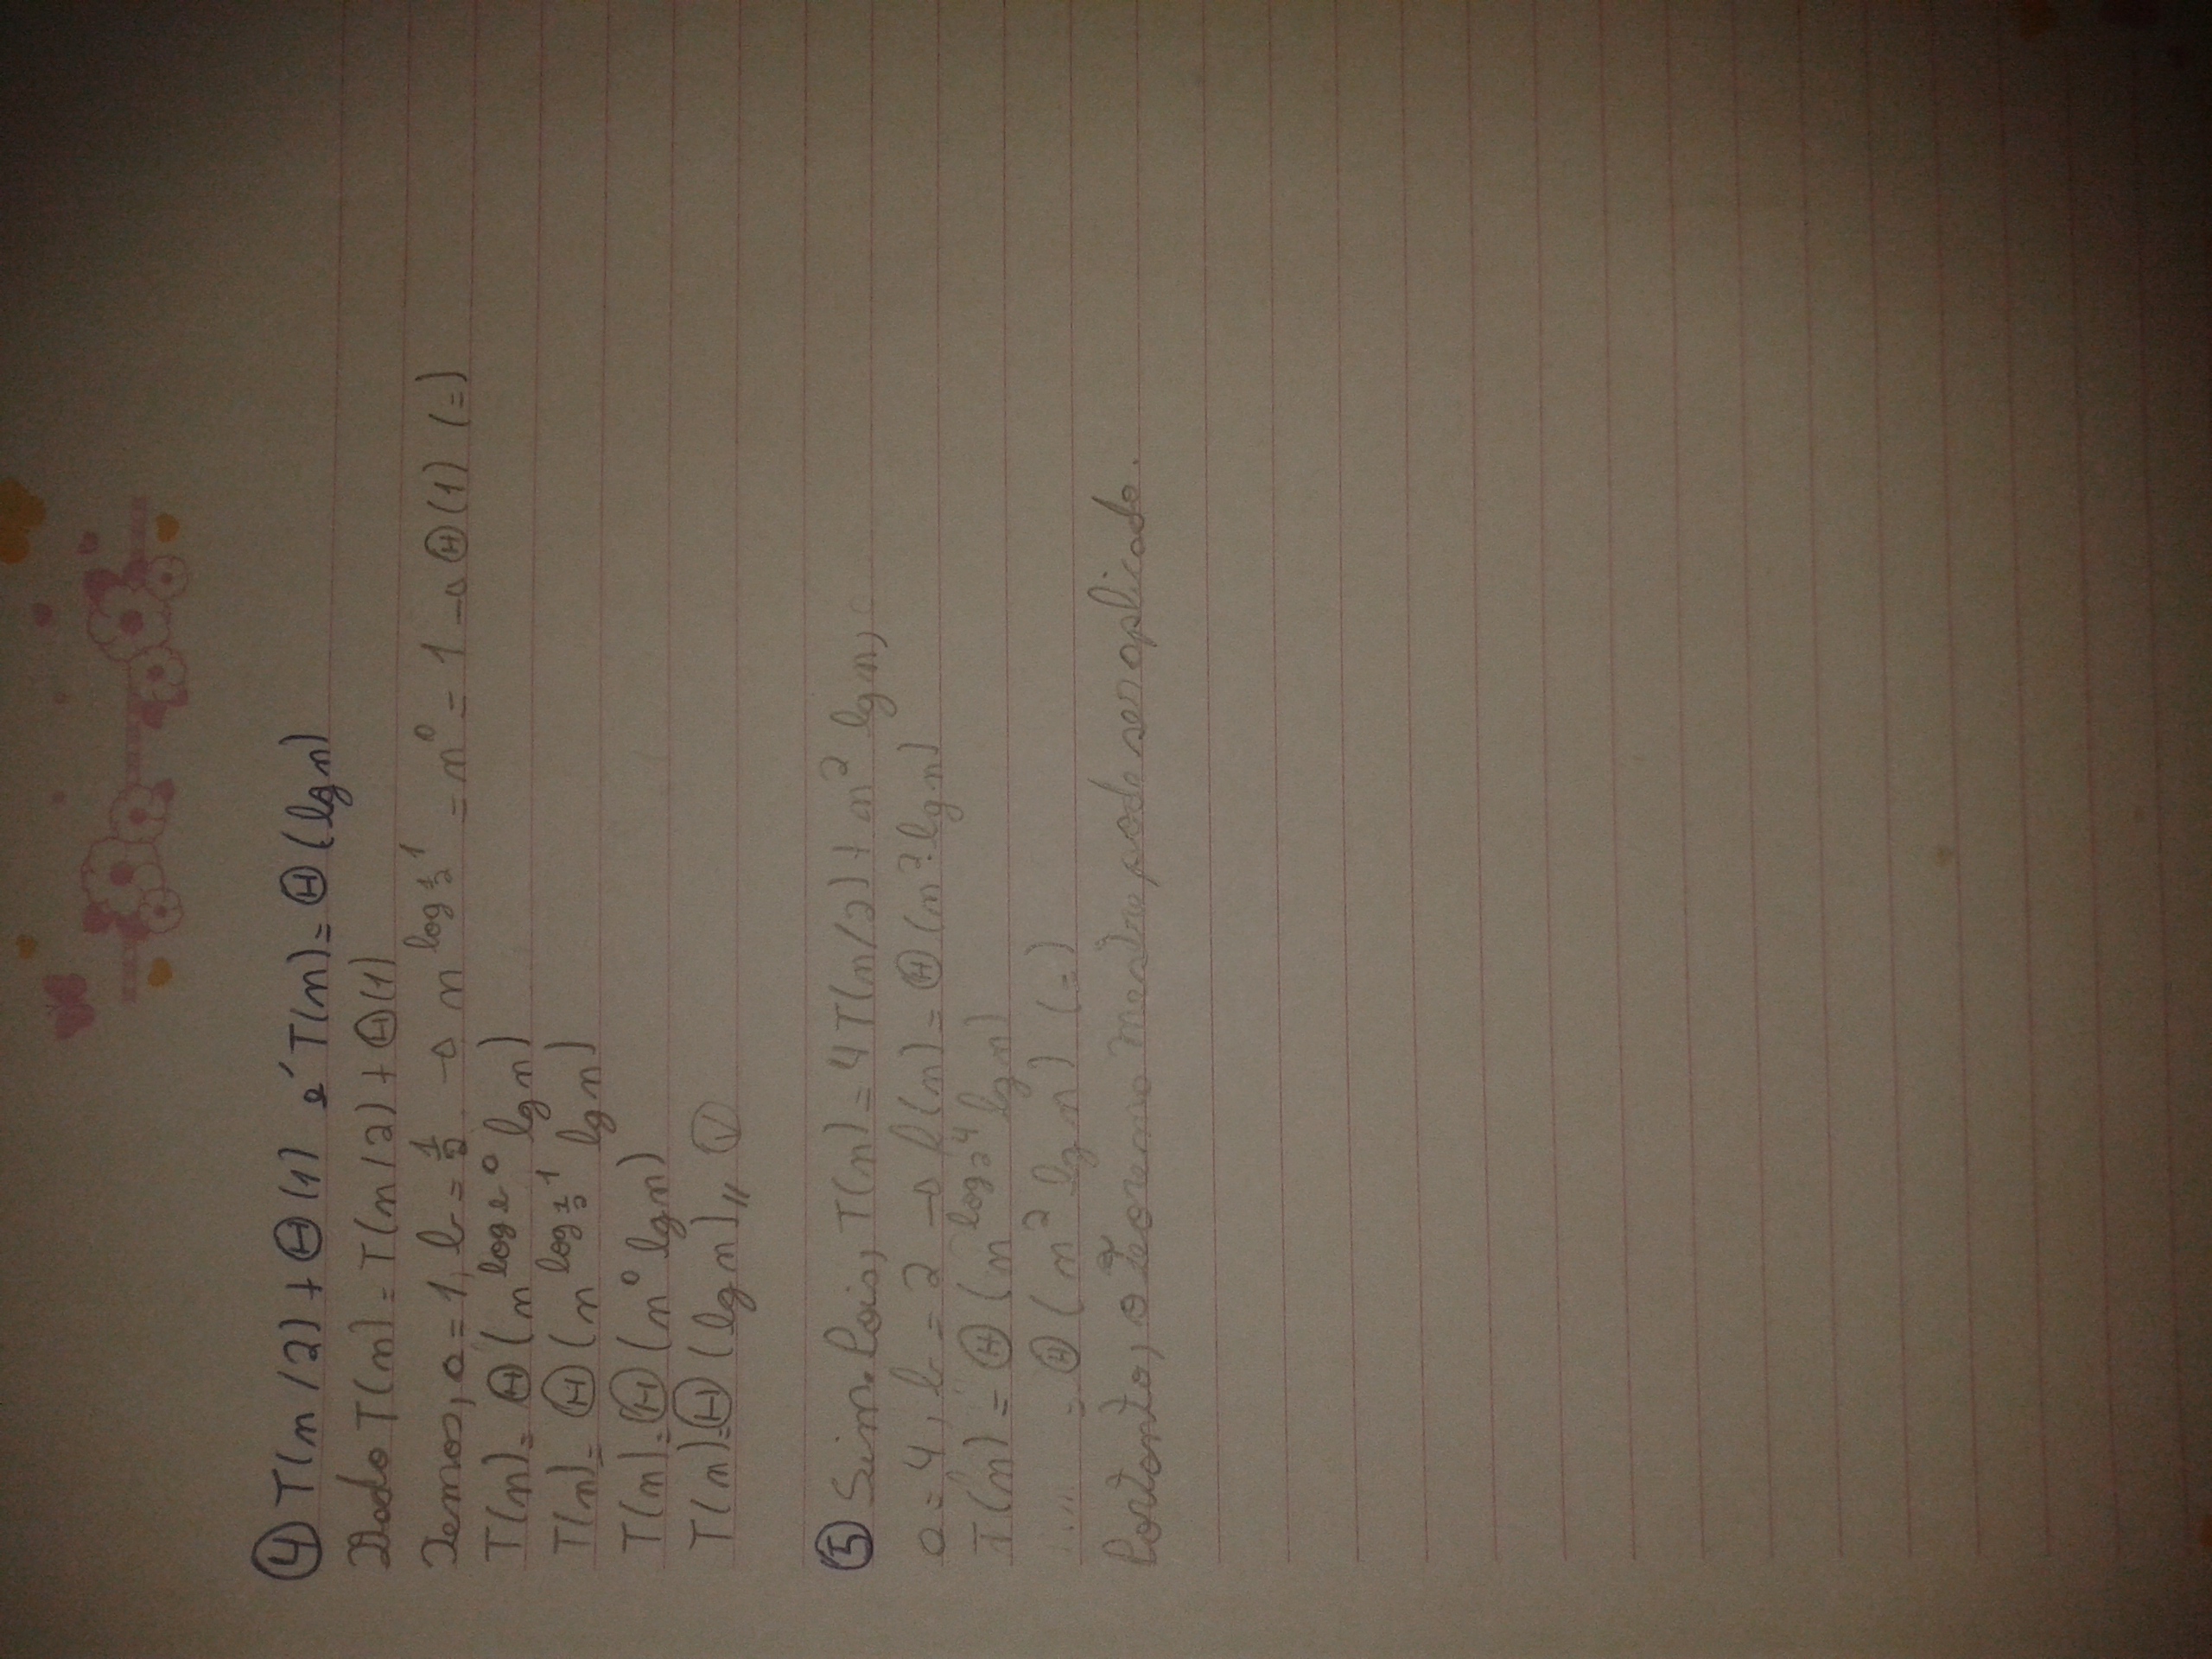 ④ T(n/2) + Θ(1) é T(n) = Θ(lg n)
Dado T(n) = T(n/2) + Θ(1)
Temos, a = 1, b = 1/2 → n^log 1/2 1 = n^0 = 1 → Θ(1) (=)
T(n) = Θ(n^log b a lg n)
T(n) = Θ(n^log 1/2 1 lg n)
T(n) = Θ(n^0 lg n)
T(n) = Θ(lg n)// Ⓥ
⑤ Sim. Pois, T(n) = 4T(n/2) + n² lg n,
a = 4, b = 2 → f(n) = Θ(n² lg n)
T(n) = Θ(n^log 2 4 lg n)
..... = Θ(n² lg n) (=)
Portanto, o Teorema Mestre pode ser aplicado.